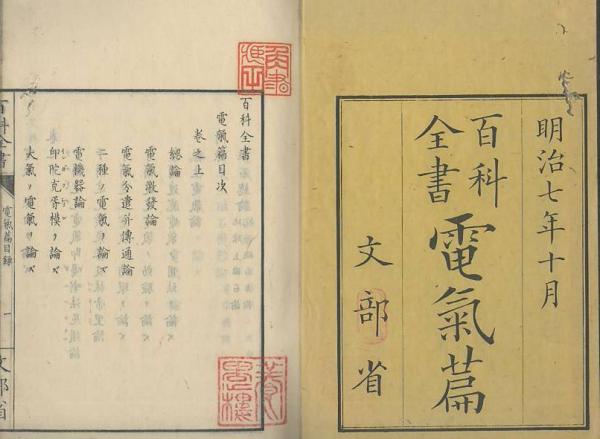 明治七年十月
百科全書
電氣篇
文部省
百科全書
電氣篇目次
卷之上
總論
電氣激發論
電氣分遣并傳通論
二種ノ電氣ヲ論ス
電機器論
大氣ノ電氣ヲ論ス
百科全書
電氣篇目錄
一
文部省